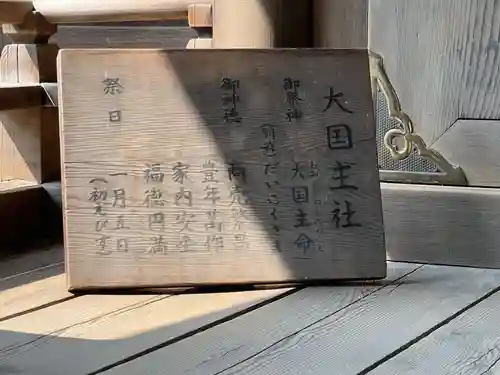 大国主社
御祭神
大国主命
だいこくさま
御神徳
商売繁昌
豊年萬作
家内安全
福徳円満
祭日
一月五日
(初えびす)